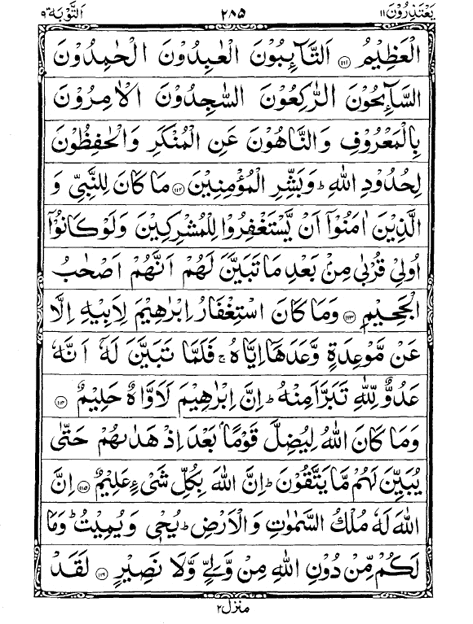 يَعْتَذِرُوْنَ ۱۱ ۲۸۵ اَلتَّوْبَة ۹
الْعَظِيْمُ ﴿۱۱۱﴾ اَلتَّآئِبُوْنَ الْعٰبِدُوْنَ الْحٰمِدُوْنَ
السَّآئِحُوْنَ الرّٰكِعُوْنَ السّٰجِدُوْنَ الْاٰمِرُوْنَ
بِالْمَعْرُوْفِ وَالنَّاهُوْنَ عَنِ الْمُنْكَرِ وَالْحٰفِظُوْنَ
لِحُدُوْدِ اللّٰهِ ؕ وَبَشِّرِ الْمُؤْمِنِيْنَ ﴿۱۱۲﴾ مَا كَانَ لِلنَّبِيِّ وَ
الَّذِيْنَ اٰمَنُوْۤا اَنْ يَّسْتَغْفِرُوْا لِلْمُشْرِكِيْنَ وَلَوْ كَانُوْۤا
اُولِيْ قُرْبٰى مِنْۢ بَعْدِ مَا تَبَيَّنَ لَهُمْ اَنَّهُمْ اَصْحٰبُ
الْجَحِيْمِ ﴿۱۱۳﴾ وَمَا كَانَ اسْتِغْفَارُ اِبْرٰهِيْمَ لِاَبِيْهِ اِلَّا
عَنْ مَّوْعِدَةٍ وَّعَدَهَاۤ اِيَّاهُ ۚ فَلَمَّا تَبَيَّنَ لَهٗۤ اَنَّهٗ
عَدُوٌّ لِّلّٰهِ تَبَرَّاَ مِنْهُ ؕ اِنَّ اِبْرٰهِيْمَ لَاَوَّاهٌ حَلِيْمٌ ﴿۱۱۴﴾
وَمَا كَانَ اللّٰهُ لِيُضِلَّ قَوْمًۢا بَعْدَ اِذْ هَدٰىهُمْ حَتّٰى
يُبَيِّنَ لَهُمْ مَّا يَتَّقُوْنَ ؕ اِنَّ اللّٰهَ بِكُلِّ شَيْءٍ عَلِيْمٌ ﴿۱۱۵﴾ اِنَّ
اللّٰهَ لَهٗ مُلْكُ السَّمٰوٰتِ وَالْاَرْضِ ؕ يُحْيٖ وَيُمِيْتُ ؕ وَمَا
لَكُمْ مِّنْ دُوْنِ اللّٰهِ مِنْ وَّلِيٍّ وَّلَا نَصِيْرٍ ﴿۱۱۶﴾ لَقَدْ
منزل ۲